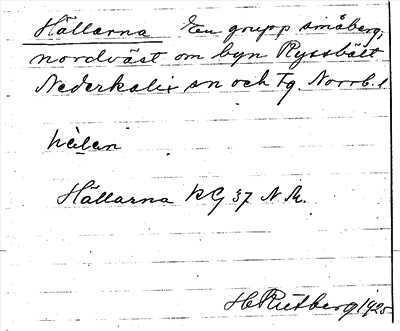 Hällarna En grupp småberg,
nordväst om byn Ryssbält
Nederkalix sn och tg. Norrb. l
hèlan
Hällarna KG 37 N.M.
H Rietberg 1925